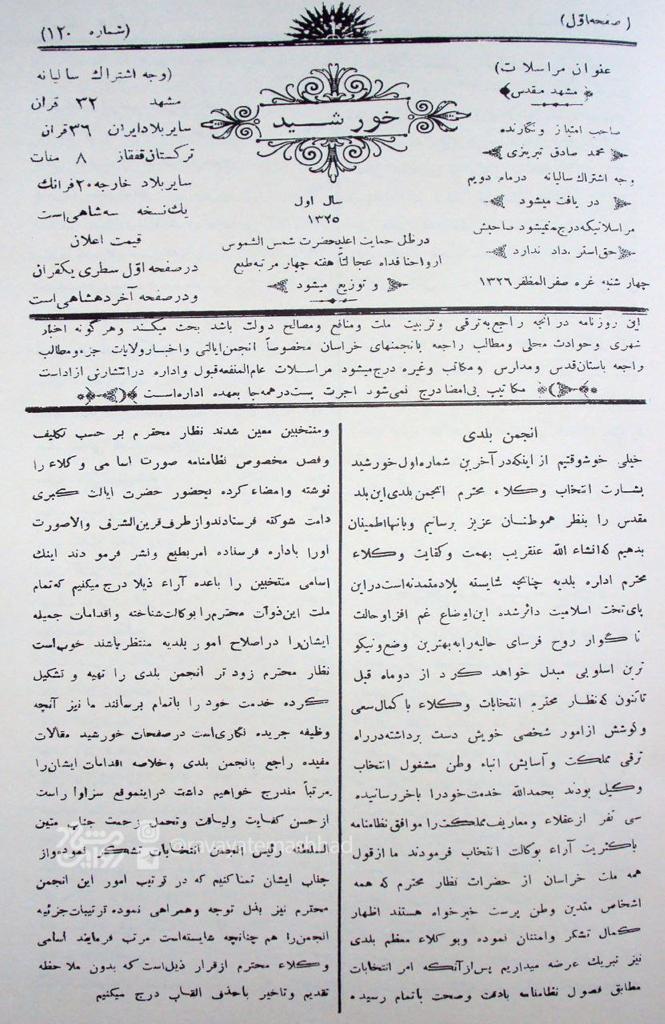 (صفحه اول)
(شماره ۱۲۰)
عنوان مراسلات)
مشهد مقدس
صاحب امتیاز و نگارنده
محمد صادق تبریزی
وجه اشتراک سالیانه درماه دویم
در یافت میشود
مراسلاتیکه درج نمیشود صاحبش
حق استرداد ندارد
چهار شنبه غره صفرالمظفر ۱۳۲۶
خورشید
سال اول
۱۳۲۵
درظل حمایت اعلیحضرت شمس الشموس
ارواحنا فداه عجالتاً هفته چهار مرتبه طبع
و توزیع میشود
(وجه اشتراک سالیانه
مشهد ۳۲ قران
سایر بلاد ایران ۳۶ قران
ترکستان قفقاز ۸ منات
سایر بلاد خارجه ۲۰ فرانک
یك نسخه سه شاهی است
قیمت اعلان
در صفحه اول سطری یکقران
و در صفحه آخر دهشاهی است
این روزنامه در آنچه راجع به ترقی و تربیت ملت و منافع و مصالح دولت باشد بحث میکند و هر گونه اخبار
شهری و حوادث محلی و مطالب راجعه بانجمنهای خراسان مخصوصاً انجمن ایالتی و اخبار ولایات جزء و مطالب
راجعه باستان قدس و مدارس و مکاتب وغیره درج میشود مراسلات عام المنفعه قبول و اداره در انتشارش آزاد است
مکاتیب بی امضا درج نمی شود اجرت پست در همه جا بعهده اداره است
انجمن بلدی
خیلی خوشوقتیم از اینکه در آخرین شماره اول خورشید
بشارت انتخاب وکلاء محترم انجمن بلدی این بلد
مقدس را بنظر هموطنان عزیز برسانیم و بانها اطمینان
بدهیم که انشاء الله عنقریب بهمت وکفایت وکلاء
محترم اداره بلدیه چنانچه شایسته بلاد متمدنه است در این
پای تخت اسلامیت دائر شده این اوضاع غم افزا و حالت
نا گوار روح فرسای حالیه را به بهترین وضع و نیکو
ترین اسلوبی مبدل خواهد کرد از دوماه قبل
تا کنون که نظار محترم انتخابات وکلاء با کمال سعی
و کوشش از امور شخصی خویش دست برداشته در راه
ترقی مملکت و آسایش ابناء وطن مشغول انتخاب
وکیل بودند بحمدالله خدمت خود را باخر رسانیده
سی نفر از عقلاء و معاریف مملکت را موافق نظامنامه
باکثریت آراء بوکالت انتخاب فرمودند ما از قول
همه ملت خراسان از حضرات نظار محترم که همه
اشخاص متدین وطن پرست خیرخواه هستند اظهار
کمال تشکر و امتنان نموده و بوکلاء معظم بلدی
نیز تبریک عرضه میداریم پس از آنکه امر انتخابات
مطابق فصول نظامنامه بادقت وصحت باتمام رسیده
ومنتخبین معین شدند نظار محترم بر حسب تکلیف
وفصل مخصوص نظامنامه صورت اسامی وکلاء را
نوشته وامضاء کرده بحضور حضرت ایالت کبری
دامت شوکته فرستادند و از طرف قرین الشرف والاصورت
اورا باداره فرستاده امر بطبع ونشر فرمودند اینک
اسامی منتخبین را باعده آراء ذیلا درج میکنیم که تمام
ملت این ذوات محترم را بوکالت شناخته و اقدامات جمیله
ایشان را در اصلاح امور بلدیه منتظر باشند خوب است
نظار محترم زود تر انجمن بلدی را تهیه و تشکیل
کرده خدمت خود را باتمام برسانند ما نیز آنچه
وظیفه جریده نگاری است در صفحات خورشید مقالات
مفیده راجع بانجمن بلدی وخلاصه اقدامات ایشان را
مرتباً مندرج خواهیم داشت در اینموقع سزاوار است
از حسن کفایت ولیاقت وتحمل زحمت جناب متین
السلطنه رئیس انجمن انتخابات تشکر نموده و از
جناب ایشان تمنا کنیم که در ترتیب امور این انجمن
محترم نیز بذل توجه وهمراهی نموده ترتیبات جزئیه
انجمن را هم چنانچه شایسته است مرتب فرمایند اسامی
وکلاء محترم از قرار ذیل است که بدون ملاحظه
تقدیم وتاخیر باحذف القاب درج میکنیم
روایت مشهد
@ravayatemashhad